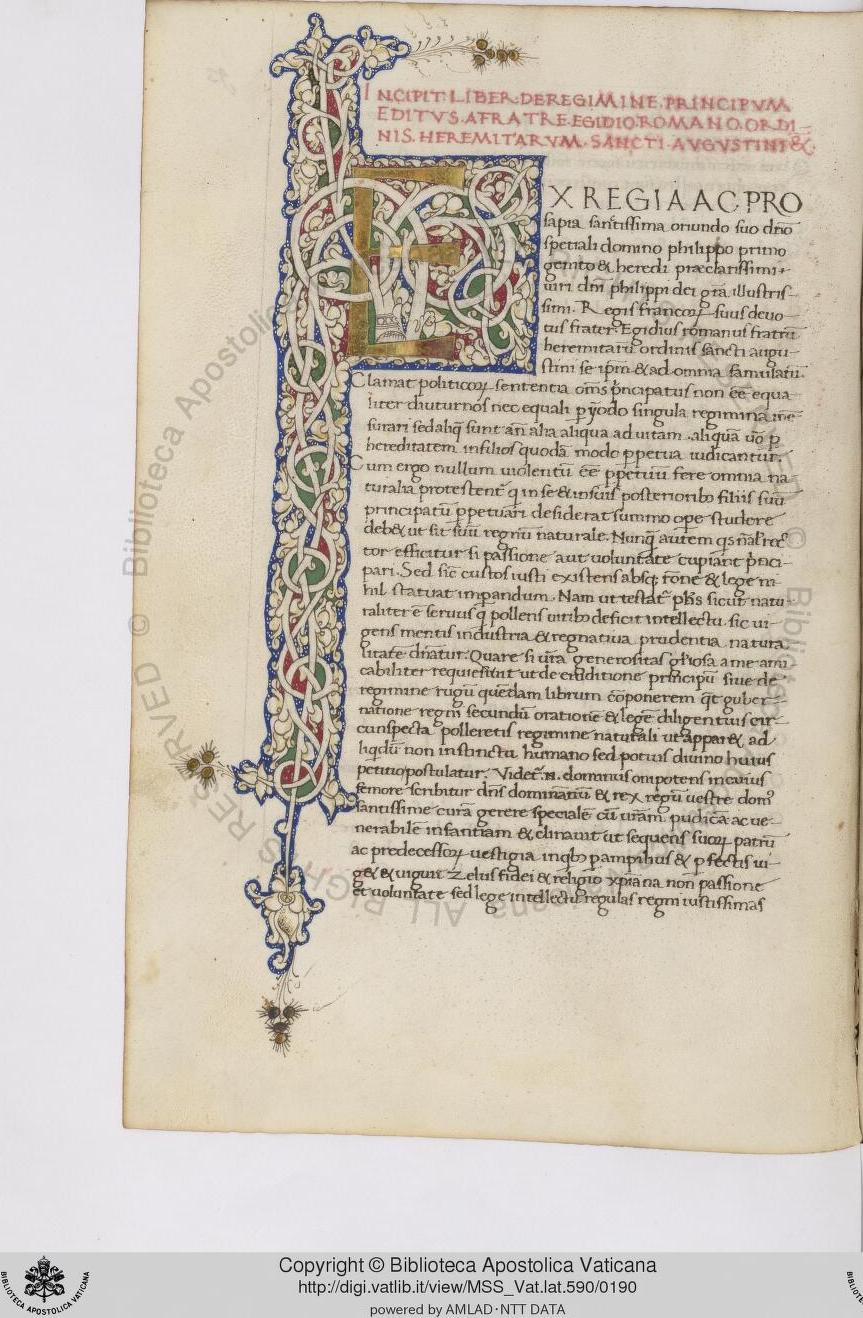 INCIPIT LIBER DE REGIMINE PRINCIPVM
EDITVS A FRATRE EGIDIO ROMANO ORDI-
NIS HEREMITARVM SANCTI AVGVSTINI &c.
EX REGIA AC PRO
sapia santissima oriundo suo dño
spetiali domino philippo primo
genito & heredi præclarissimi
uiri dñi philippi dei gra illustris-
simi. Regis francoꝝ suus deuo-
tus frater Egidius romanus fratrū
heremitarū ordinis sancti augu-
stini se ipm & ad omnia famulatū.
Clamat politicoꝝ sententia om̄s p̄ncipatus non ēē equa
liter diuturnos nec equali pyodo singula regimina me-
surari sed aliq̄ sunt añalia aliqua ad uitam aliqua uō p
hereditatem in filios quodā modo ppetua iudicantur.
Cum ergo nullum uiolentū ēē ppetuū fere omnia na
turalia protestent̄ q in se & in suis posteriorib filiis suū
principatū ppetuari desiderat summo ope studere
debet ut sit suū regnū naturale. Nunq̄ autem
tor efficitur si passione aut uoluntate cupiant p̄nci-
pari. Sed sic custos iusti existens absq; rōne & lege ni-
hil statuat imperandum. Nam ut testat phs sicut natu-
raliter ē seruus q pollens uirib deficit intellectu sic ui-
gens mentis industria & regnatiua prudentia natura
liter dñatur. Quare si ura generositas glīosa a me ami
cabiliter requisiuit ut de eruditione principū siue de
regimine regnū quendam librum cōponerem q̄t guber-
natione regni secundū orationē & legē diligentius cir-
cunspecta polleretis regimine naturali ut apparet ad
liqdū non instinctu humano sed potius diuino huius
petitio postulatur. Videt̄ n. dominus omipotens in cuius
femore scribitur dns dominatiū & rex regū uestre dom'
santissime curā gerere speciale cū uram pudicā ac ue-
nerabile infantiam & elinauit ut sequens suoꝝ patrū
ac predecessoꝝ uestigia in qb p ampibus & pfectis ui-
get & uiguit zelus fidei & religio xp̄iana non passione
et uoluntate sed lege intellectu regulas regni iustissimas
Copyright © Biblioteca Apostolica Vaticana
http://digi.vatlib.it/view/MSS_Vat.lat.590/0190
powered by AMLAD·NTT DATA
BIBLIOTECA APOSTOLICA VATICANA